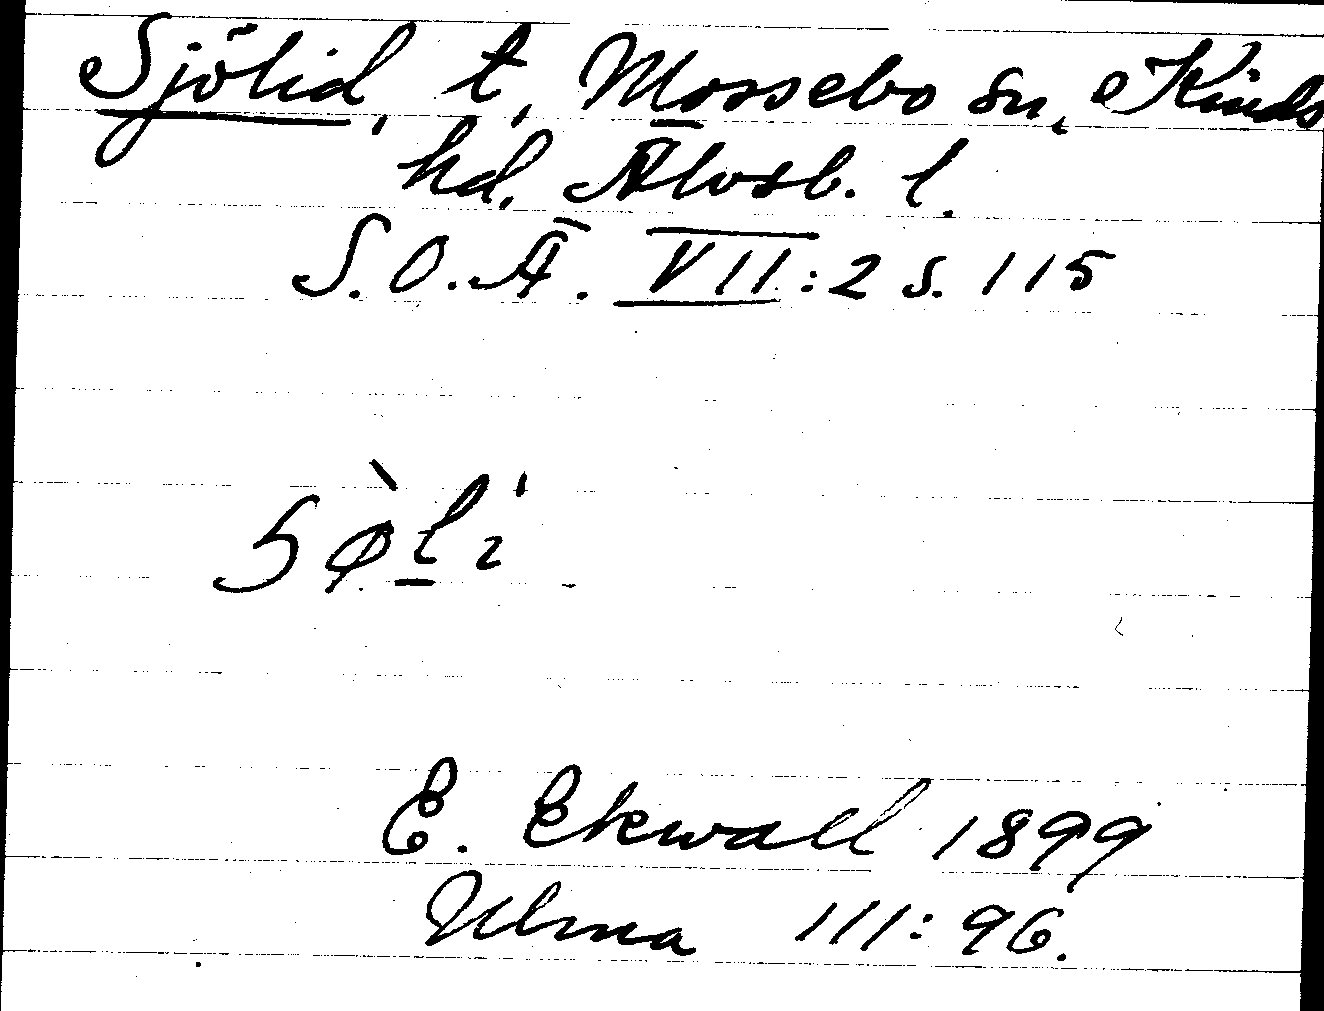 Sjölid, t, Mossebo sn, Kinds
hd. Älvsb. l.
S.O.Ä. VII:2 s. 115
E. Ekwall 1899
Ulma III: 96.